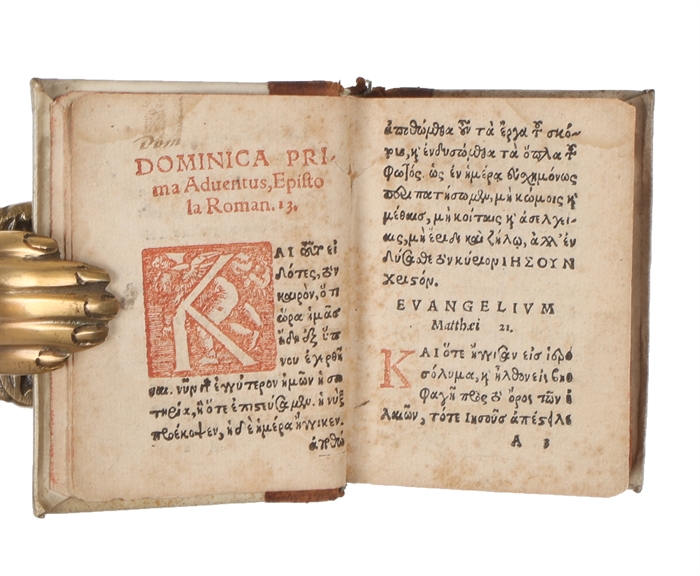 Dom
DOMINICA PRI-
ma Aduentus, Episto
la Roman. 13.
ΚΑΙ τοῦτο εἰ
δότες, τὸν
καιρὸν, ὅτι
ὥρα ἡμᾶς
ἤδη ἐξ ὕπ
νου ἐγερθῆ
ναι. νῦν γὰρ ἐγγύτερον ἡμῶν ἡ σω
τηρία, ἢ ὅτε ἐπιστεύσαμεν. ἡ νὺξ
προέκοψεν, ἡ δὲ ἡμέρα ἤγγικεν.
ἀποθώ
ἀποθώμεθα οὖν τὰ ἔργα τοῦ σκό-
τους, καὶ ἐνδυσώμεθα τὰ ὅπλα τοῦ
φωτός. ὡς ἐν ἡμέρᾳ εὐσχημόνως
περιπατήσωμεν, μὴ κώμοις καὶ
μέθαις, μὴ κοίταις καὶ ἀσελγεί-
αις, μὴ ἔριδι καὶ ζήλῳ, ἀλλ' ἐν
δύσασθε τὸν κύριον ΙΗΣΟΥΝ
Χριστόν.
EVANGELIVM
Matthæi 21.
ΚΑΙ ὅτε ἤγγισαν εἰς ἱερο
σόλυμα, καὶ ἦλθον εἰς βηθ
φαγῆ πρὸς τὸ ὄρος τῶν ἐ
λαιῶν, τότε Ιησοῦς ἀπέστειλε
A 3